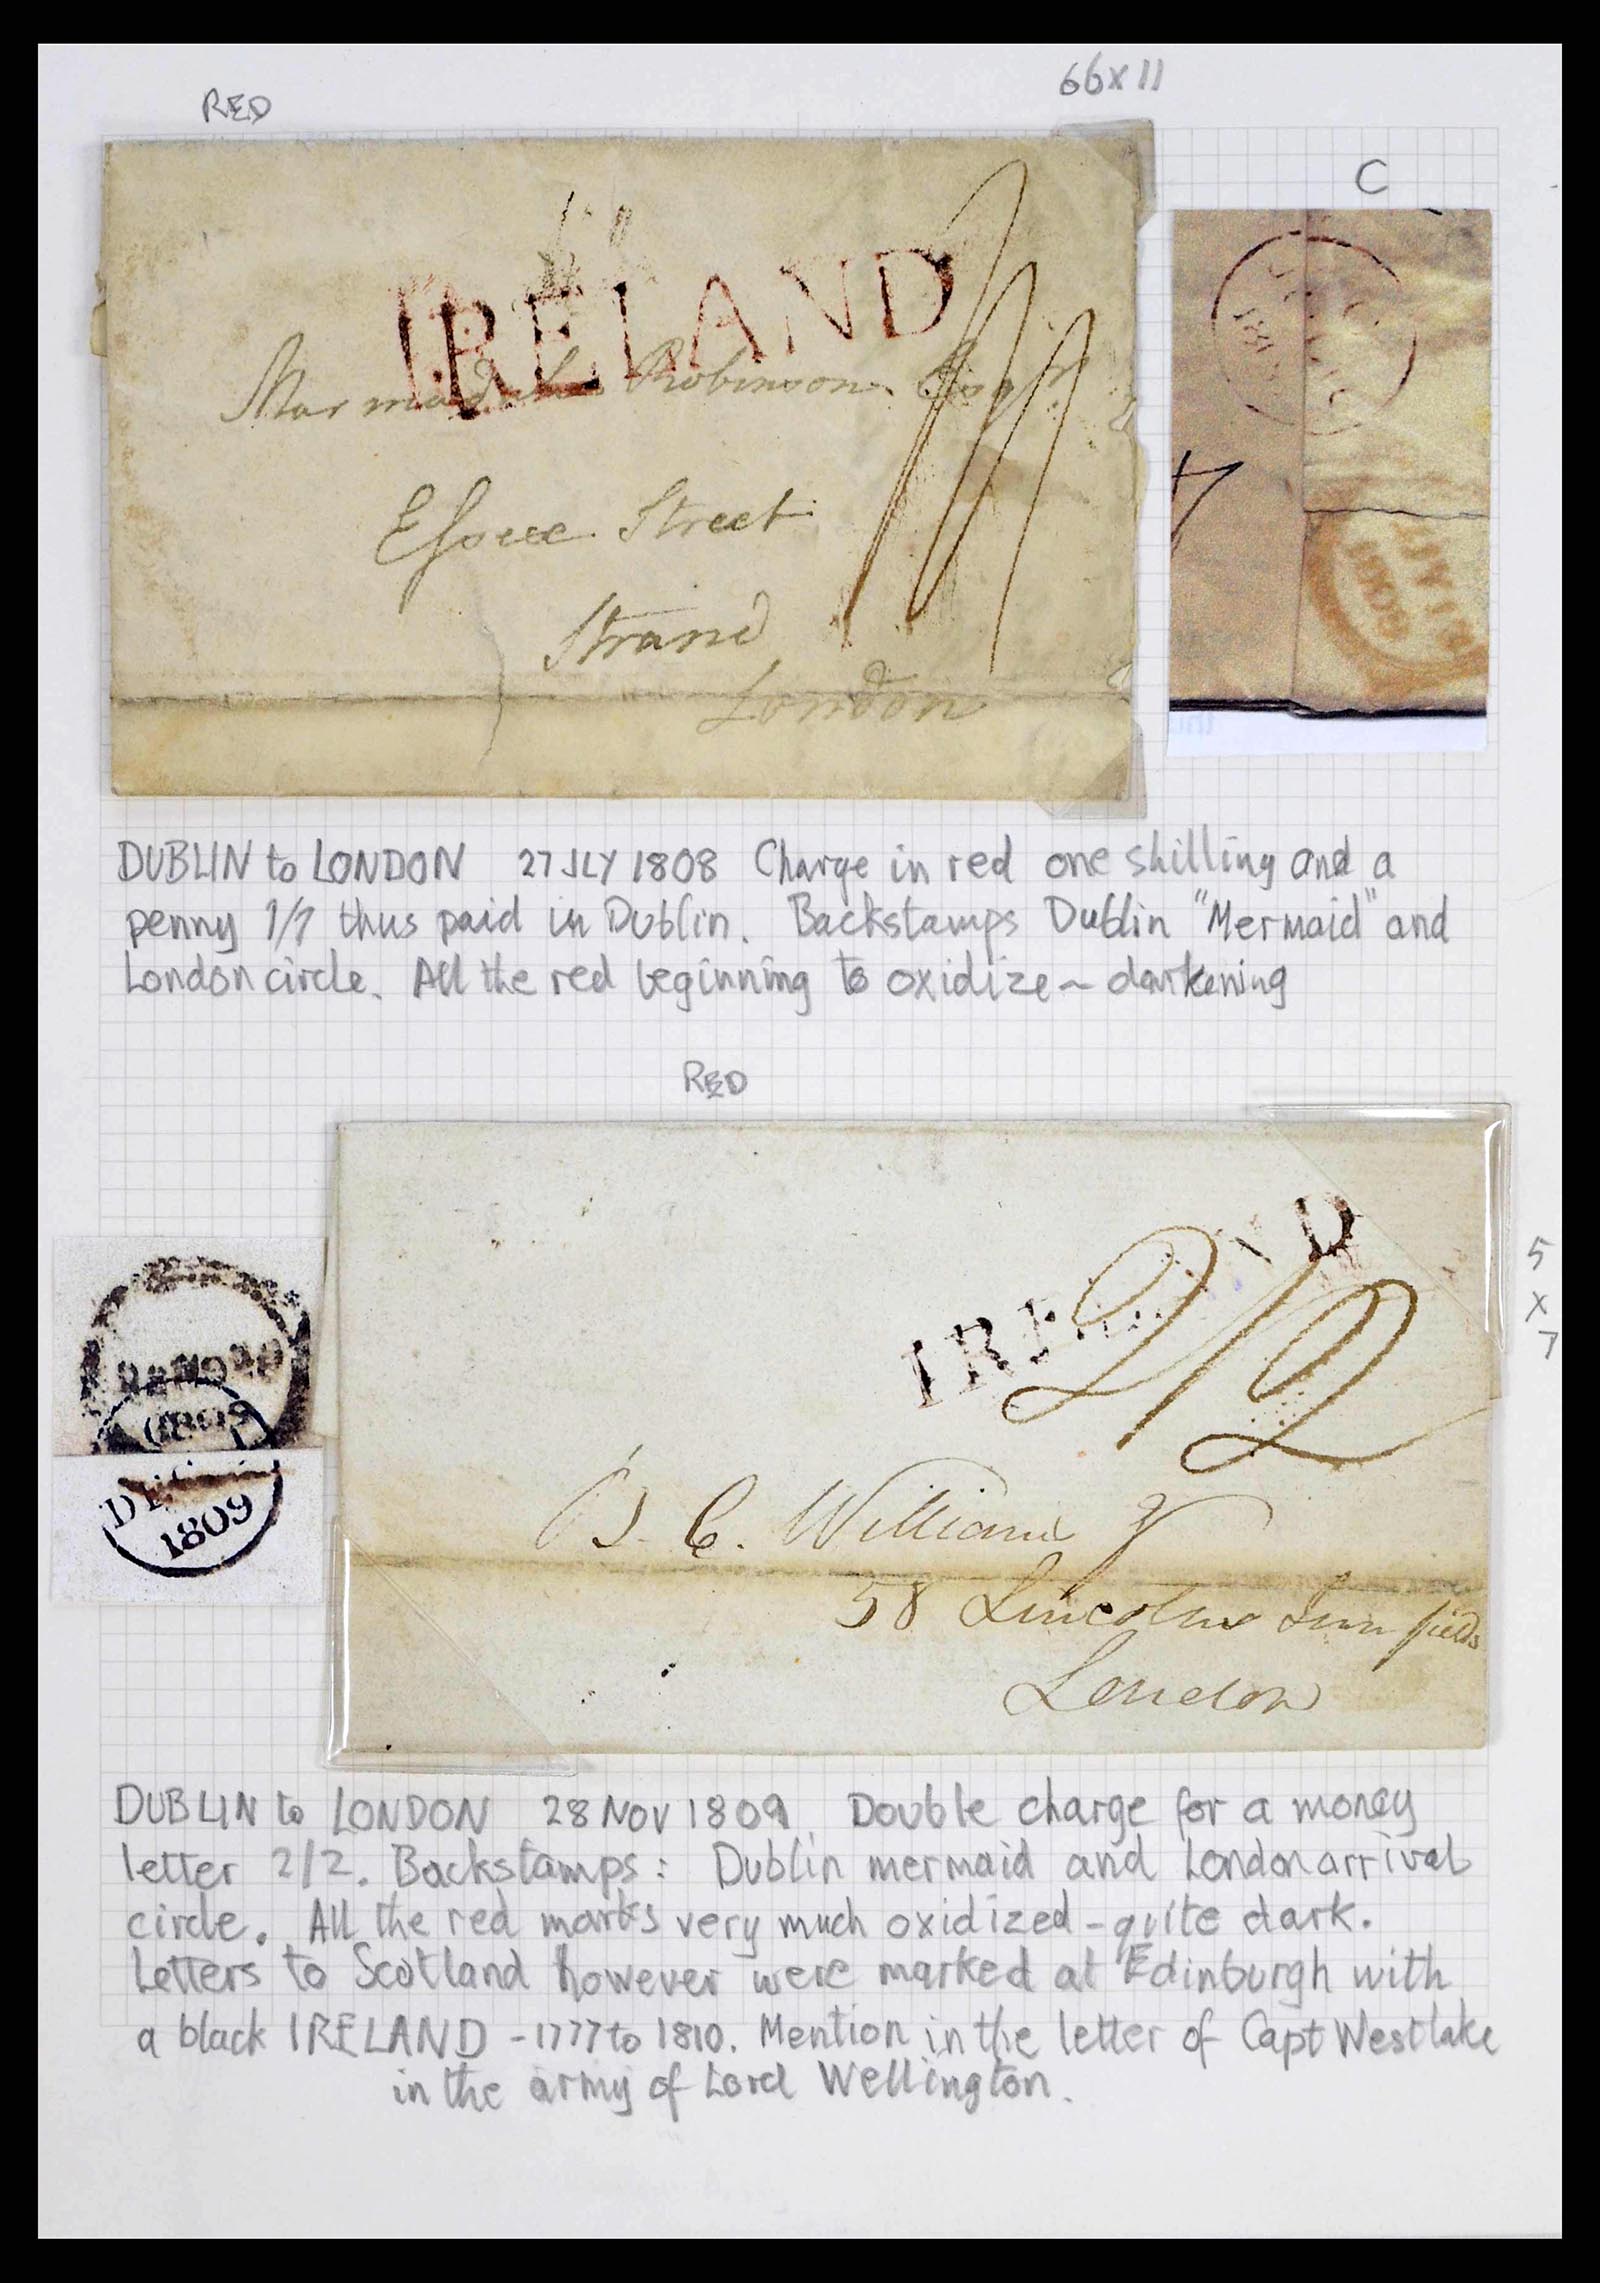 RED
66x11
C
IRELAND
1/1
Marmaduke Robinson Esqr
Essex Street
Strand
London
DUBLIN to LONDON 27 JLY 1808 Charge in red one shilling and a
penny 1/1 thus paid in Dublin. Backstamps Dublin "Mermaid" and
London circle. All the red beginning to oxidize ~ darkening
RED
5
x
7
IRELAND
2/2
1809
1809
C. Williams
58 Lincolns Inn fields
London
DUBLIN to LONDON 28 NOV 1809. Double charge for a money
letter 2/2. Backstamps: Dublin mermaid and London arrival
circle. All the red marks very much oxidized - quite dark.
Letters to Scotland however were marked at Edinburgh with
a black IRELAND - 1777 to 1810. Mention in the letter of Capt Westlake
in the army of Lord Wellington.